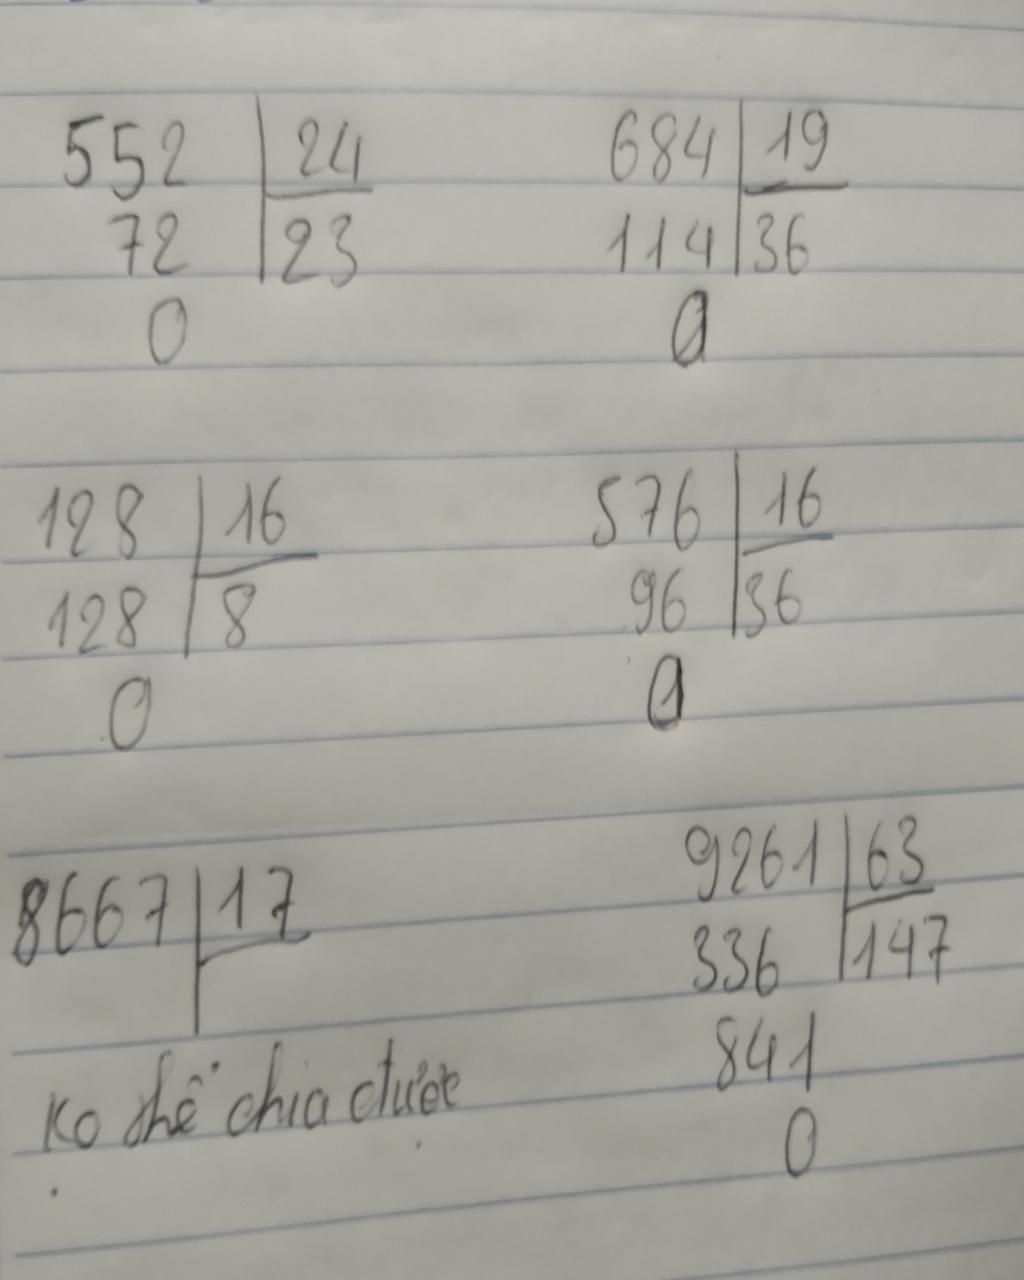 552 24
72 23
0
684 19
114 36
0
128 16
128 8
0
576 16
96 36
0
8667 17
ko thể chia được
9261 63
336 147
841
0